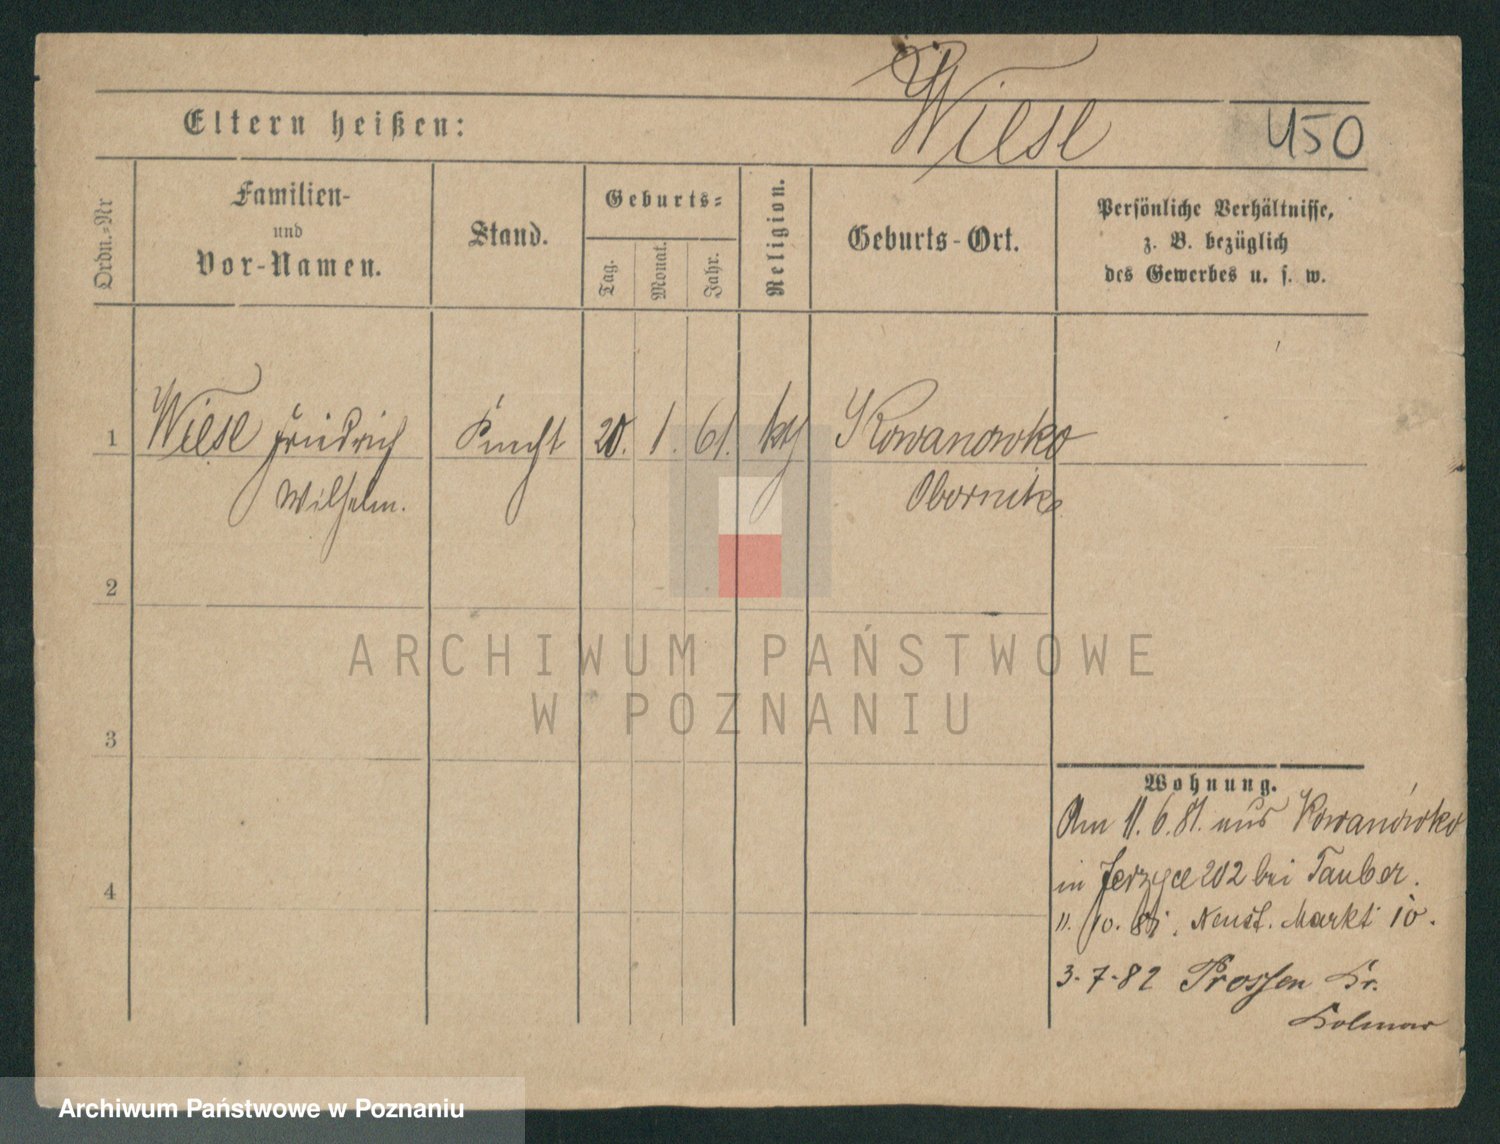 Wiese
450
Eltern heißen:
Ordn.-Nr
Familien-
und
Vor-Namen.
Stand.
Geburts-
Tag.
Monat.
Jahr.
Religion.
Geburts-Ort.
Persönliche Verhältnisse,
z. B. bezüglich
des Gewerbes u. s. w.
1 Wiese Friedrich Knecht 20. 1. 61. Kowanowko
Wilhelm. Obornik
2
3
4
Wohnung.
Am 11.6.81. aus Kowanówko
in Jerzyce 202 bei Tauber.
11. 10. 81. Neust. Markt 10.
3-7-82 Prossen Kr.
Kolmar
ARCHIWUM PAŃSTWOWE
W POZNANIU
Archiwum Państwowe w Poznaniu